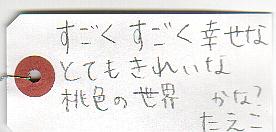 すごく すごく 幸せな
とても きれいな
桃色の世界 かな?
たえこ